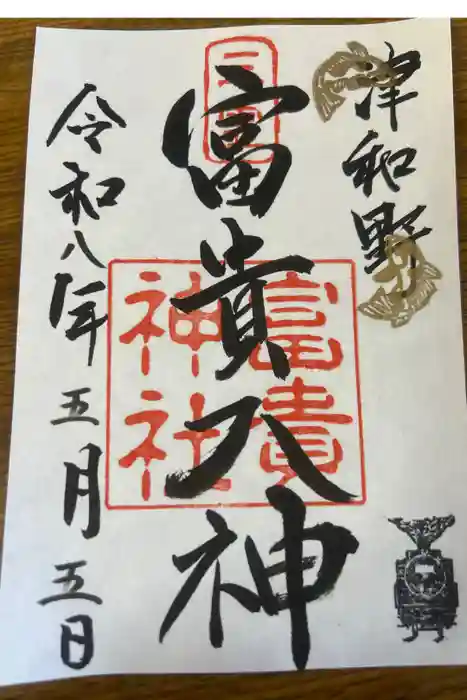 津和野
富貴大神
富貴
神社
令和八年五月五日